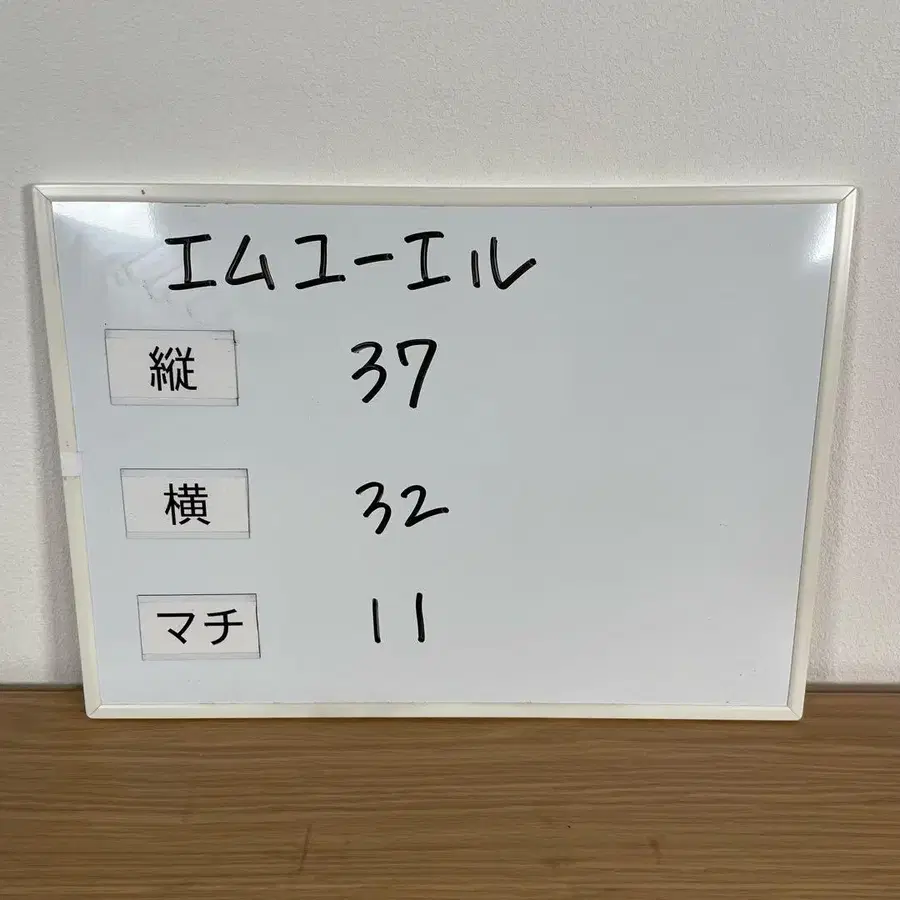 エムユーエル
縦 37
横 32
マチ 11